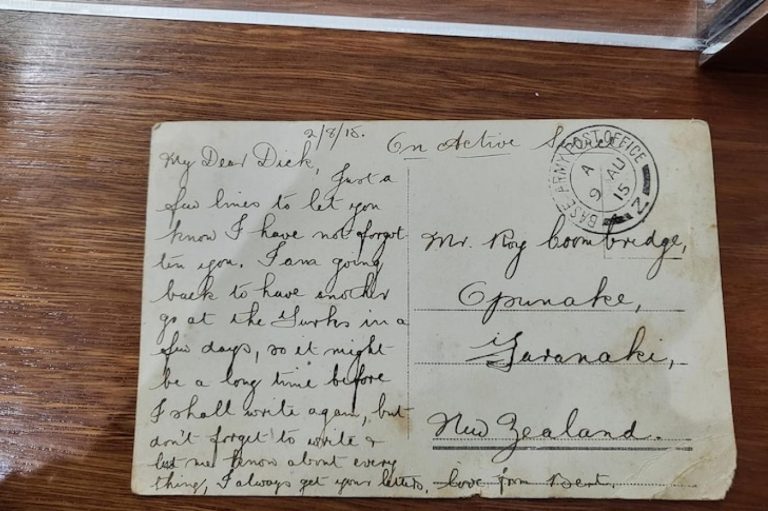 2/8/15.
On Active Service
My Dear Dick,
Just a
few lines to let you
know I have not forgot-
ten you. I am going
back to have another
go at the Turks in a
few days, so it might
be a long time before
I shall write again, but
don't forget to write &
let me know about every
thing, I always get your letters. love from Bert.
BASE ARMY POST OFFICE
A
9 AU
15
Z
Mr. Roy Coombridge,
Opunake,
Taranaki,
New Zealand.